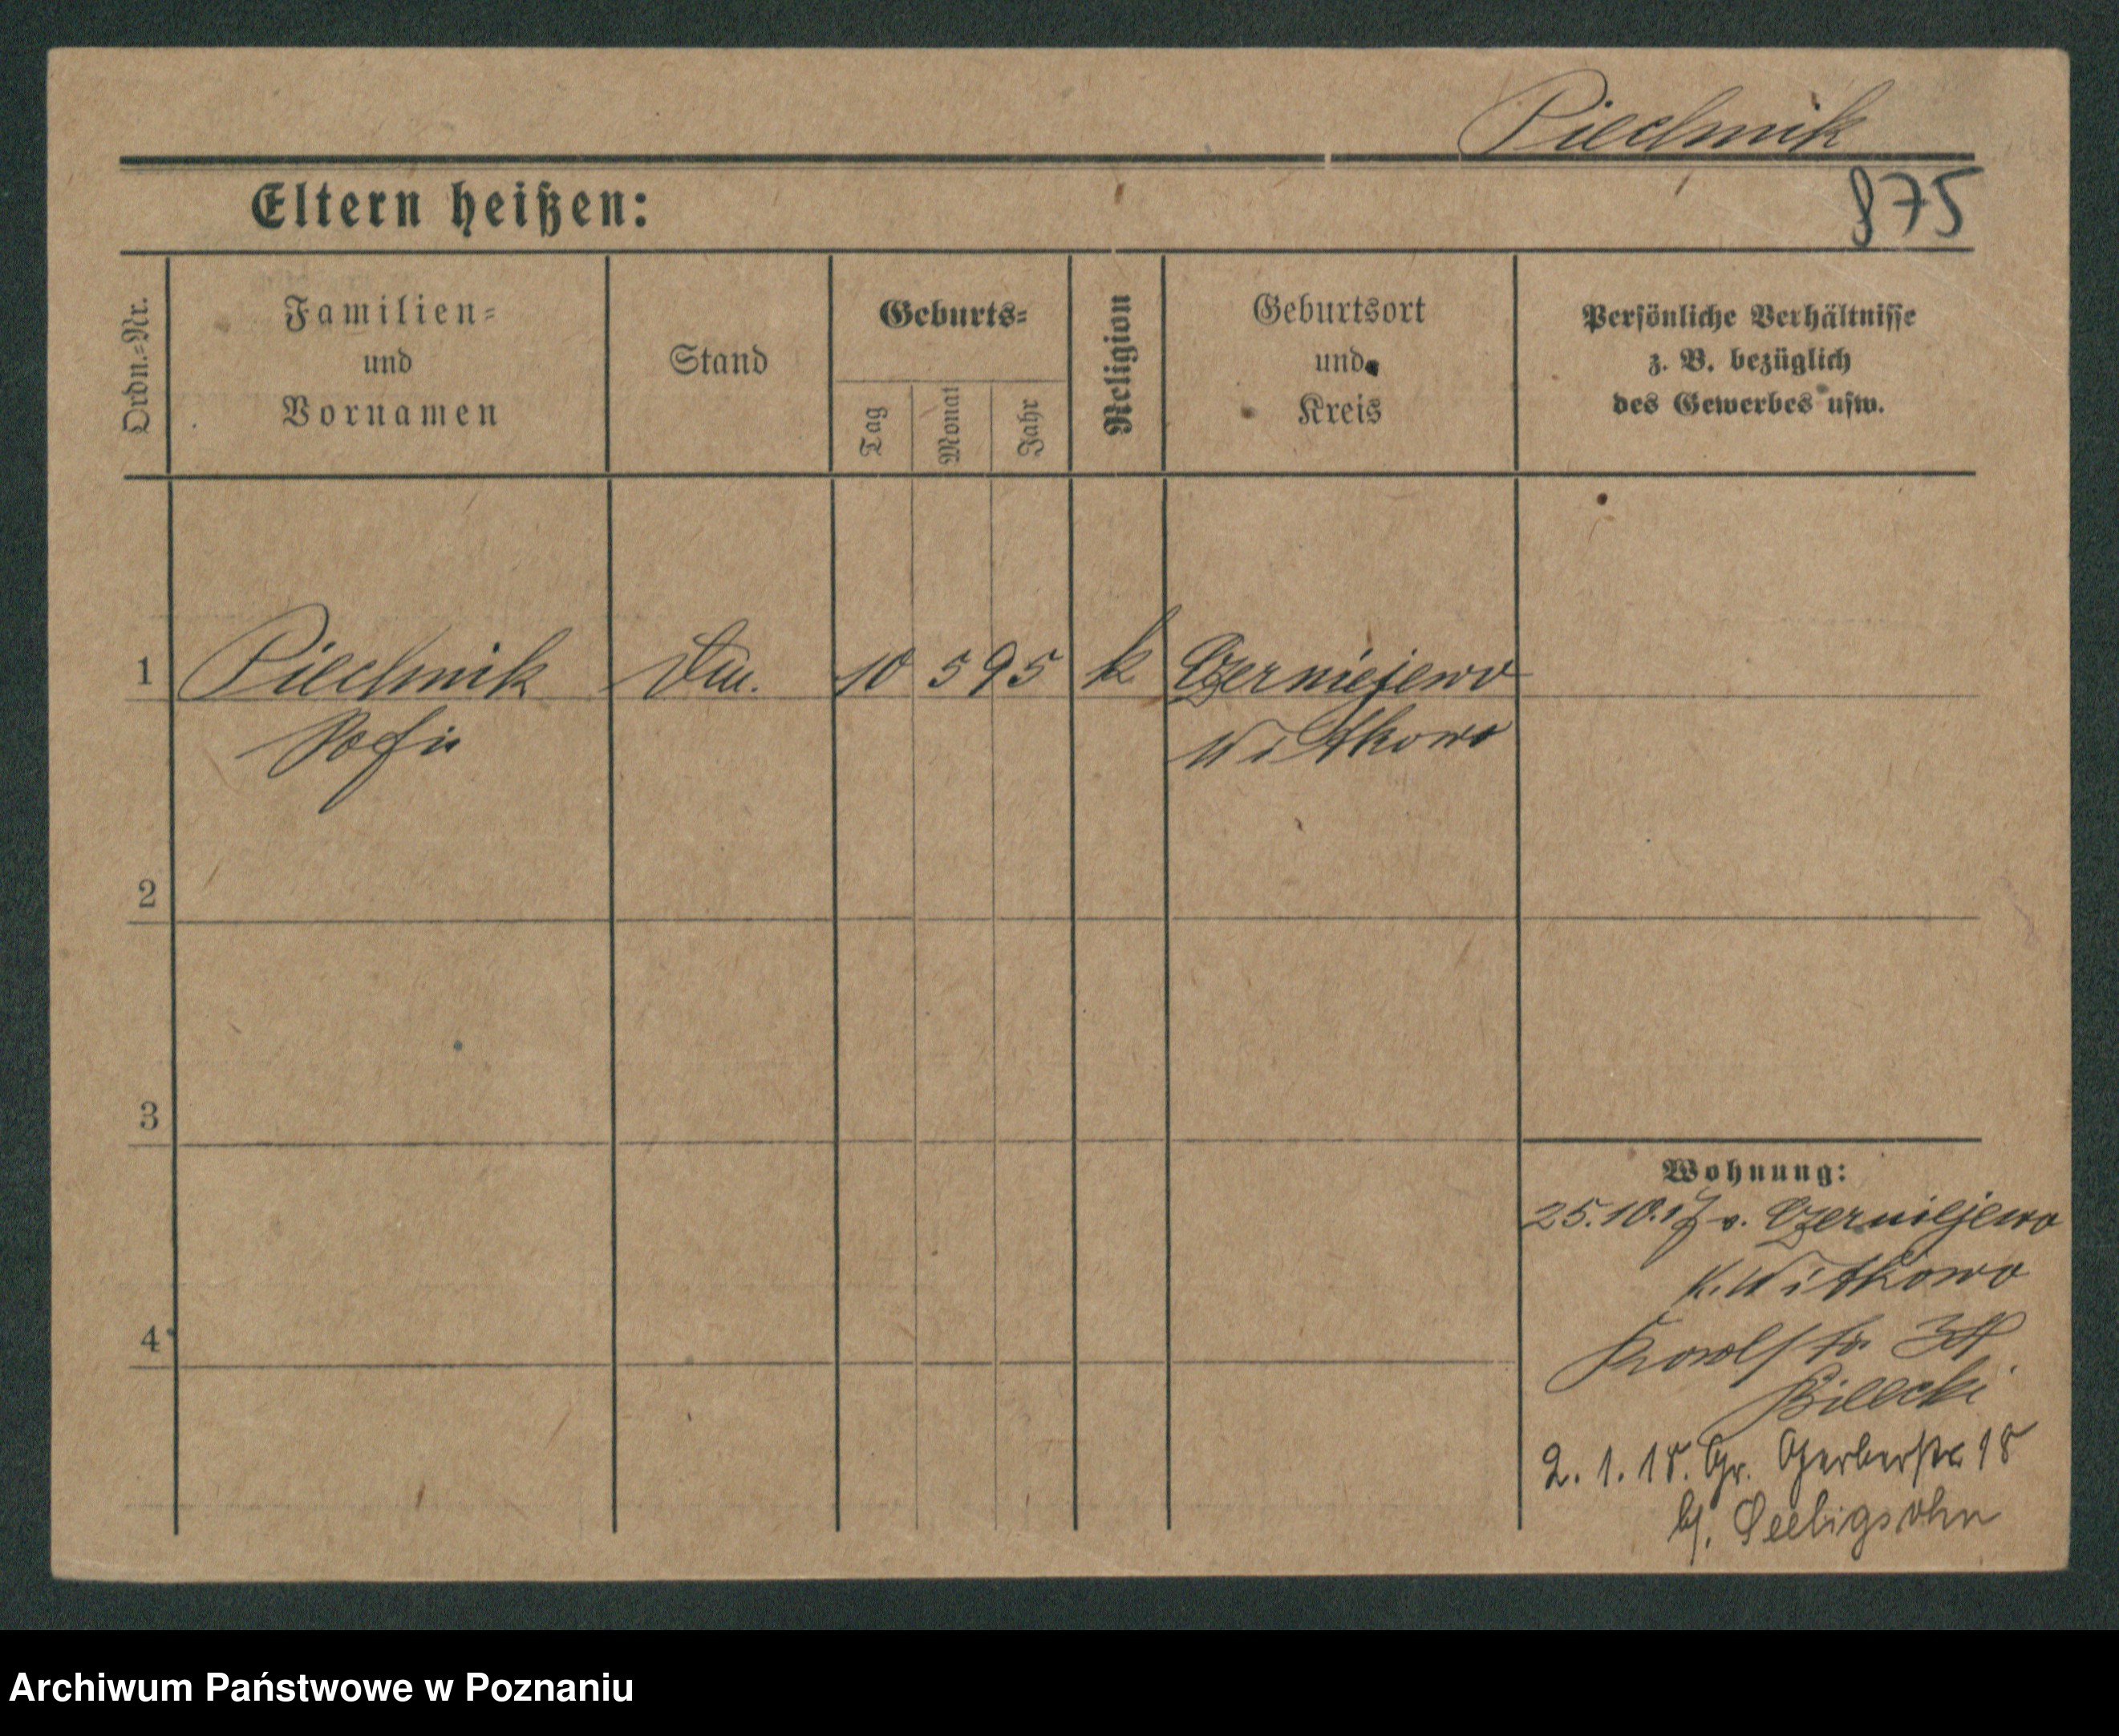 Piechnik
Eltern heißen:
875
Ordn.=Nr.
Familien=
und
Vornamen
Stand
Geburts=
Tag
Monat
Jahr
Religion
Geburtsort
und
Kreis
Persönliche Verhältnisse
z. B. bezüglich
des Gewerbes usw.
1 Piechnik 10 5 95 k Czerniejewo
Sofie Witkowo
2
3
4
Wohnung:
25.10.17 v. Czerniejewo
K. Witkowo
Bilecki
2. 1. 18. Gr. Gerberstr 18
b/. Seeligsohn
Archiwum Państwowe w Poznaniu